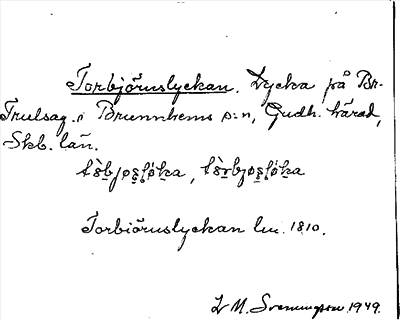 Torbjörnslyckan. Lycka på Br-
Trulsag. i Brunnhems s:n, Gudh. härad,
Skb. län.
Torbiörnslyckan lm. 1810.
L M. Svenungsson 1949.